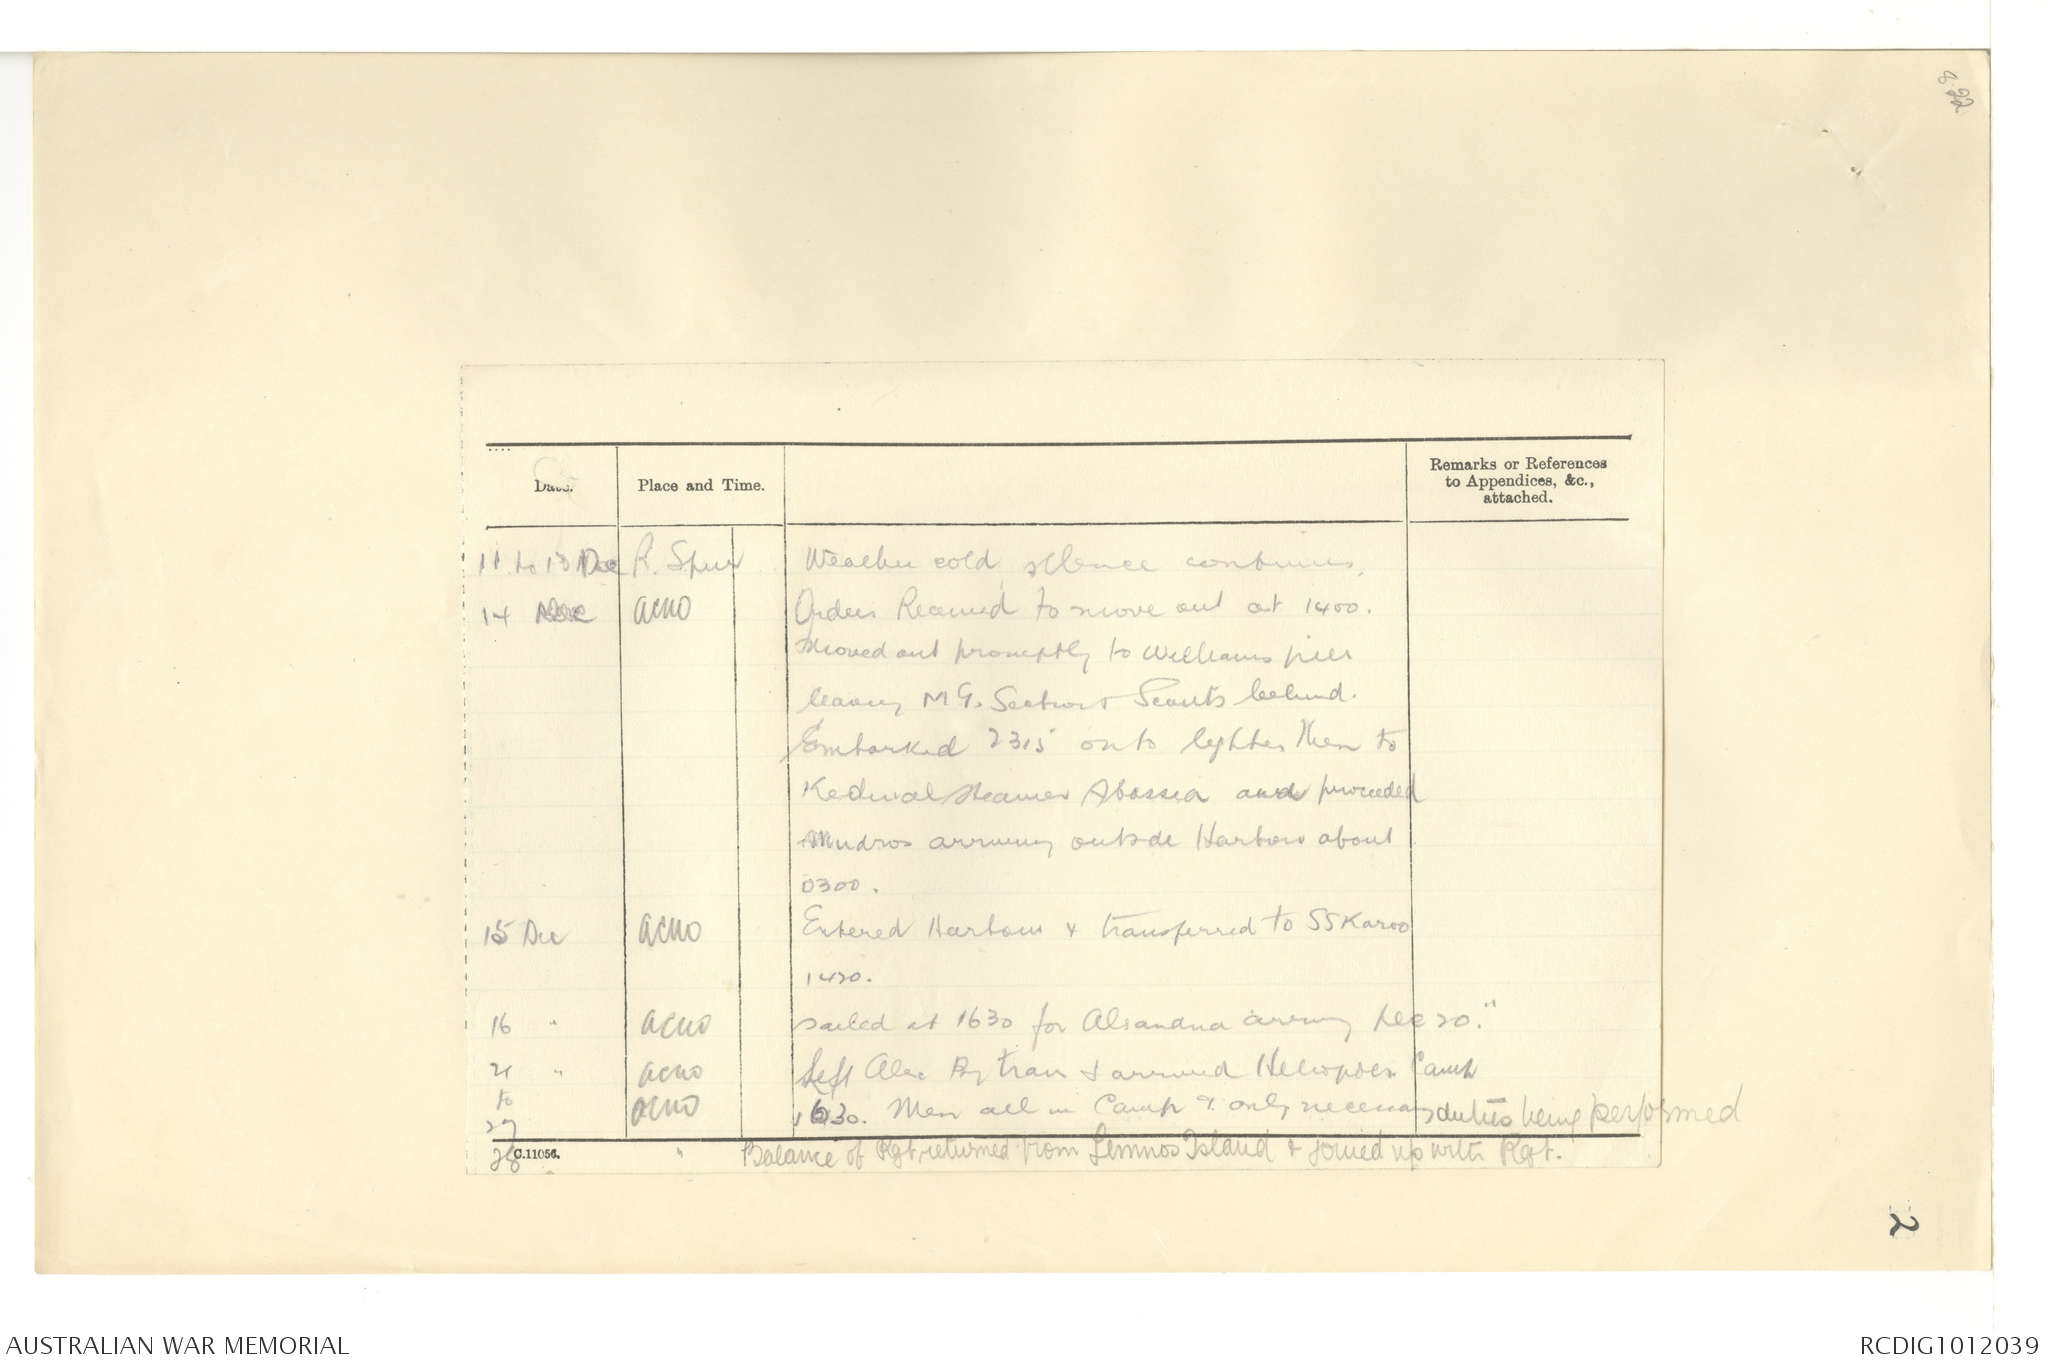 8.22
Date.
Place and Time.
Remarks or References
to Appendices, &c.,
attached.
11 to 13 Dec R. Spur Weather cold silence continues.
14 Dec ACMO Orders Received to move out at 1400.
Moved out promptly to Williams pier
leaving M G. Section & Scouts behind.
Embarked 2315 onto lighter then to
Kedivial steamer Abassea and proceeded
Mudros arriving outside Harbour about
0300.
15 Dec ACMO Entered Harbour & transferred to SS Karoo
1420.
16 " ACMO Sailed at 1630 for Alxandria arriving Dec 20."
21 " ACMO Left Alex By train & arrived Heliopolis Camp
to ACMO 1630. Men all in Camp & only necessary duties being performed
27
28 " Balance of Rgt returned from Lemnos Island & joined up with Rgt.
C.11056.
2
AUSTRALIAN WAR MEMORIAL
RCDIG1012039